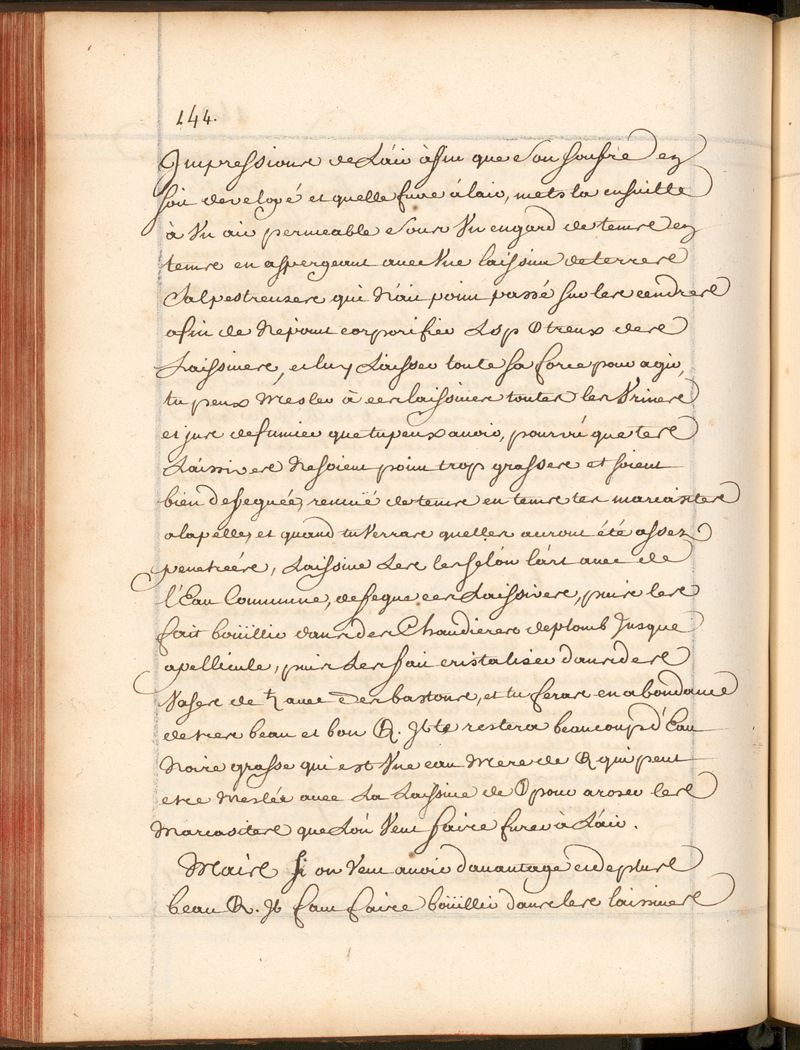 144.
Impressions de L'air àfin que son soufre en
soit developé et quelle fuse à lair, mets la ensuitte
à Un air permeable sous Un engard de tems en
tems en aspergeant avec Une laissive de terres
Salpestreuses qui N'ait point passé sur les cendres
afin de Ne point corporifier L'sp 🜕treux des
Laissives, et luy Laisser toute sa force pour agir,
tu peux Mesler à ces laissives toutes les Urines
et jus de fumier que tu peux avoir, pourvû que tes
Laissives Ne soient point trop grasses et soient
bien defeguées, remuë de tems en tems tes marcasites
a la pelle, et quand tu Verras quelles auront été assez
penetrées, Laissive Les selon l'art avec de
l'Eau Commune, defegue ces Laissives, puis les
fait boüillir dans des Chaudieres de plomb Jusque
a pellicule, puis Les fait cristaliser dans des
Vases de ♄ avec des bastons, et tu feras en abondance
de tres beau et bon . Il te restera beaucoup d'Eau
Noire grasse qui est Une eau Mere de qui peut
etre Meslée avec La Laissive de 🜕 pour aroser les
Marcasites que L'on Veut faire fuser à L'air.
Mais si on Veut avoir davantage et de plus
beau . Il faut faire boüillir dans les laissives